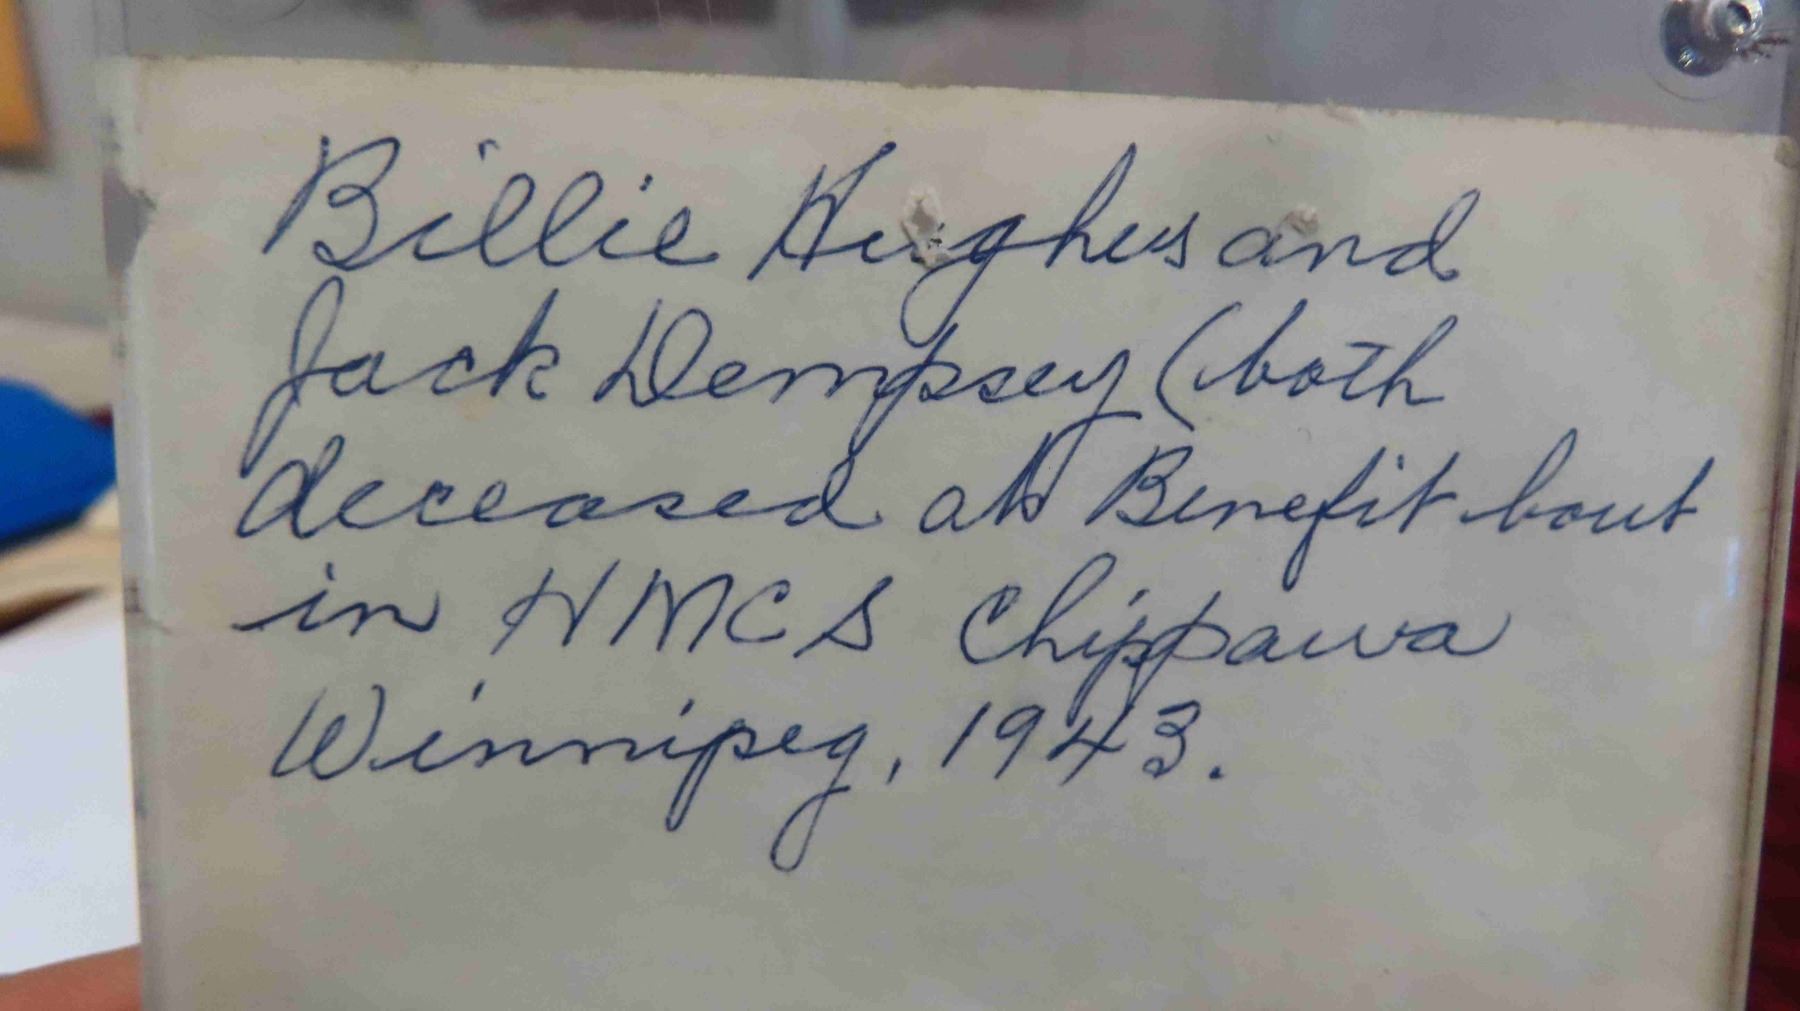 Billie Hughes and
Jack Dempsey (both
deceased at Benefit bout
in HMCS Chippawa
Winnipeg, 1943.